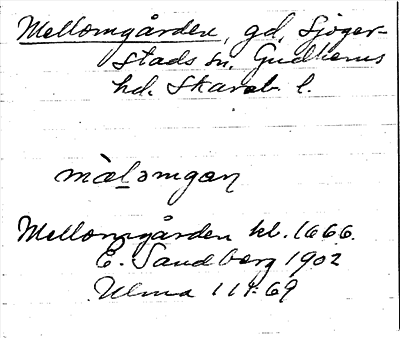 Mellomgården, gd, Sjöger-
stads sn. Gudhems
hd. Skarab. l.
màlomgan
Mellomgården kl. 1666.
E. Sandberg 1902
Ulma 111:69